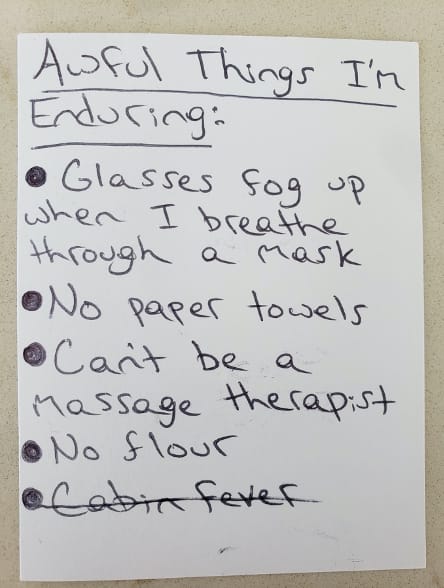 Awful Things I'm
Enduring:
• Glasses fog up
when I breathe
through a mask
• No paper towels
• Can't be a
massage therapist
• No flour
• Cabin fever